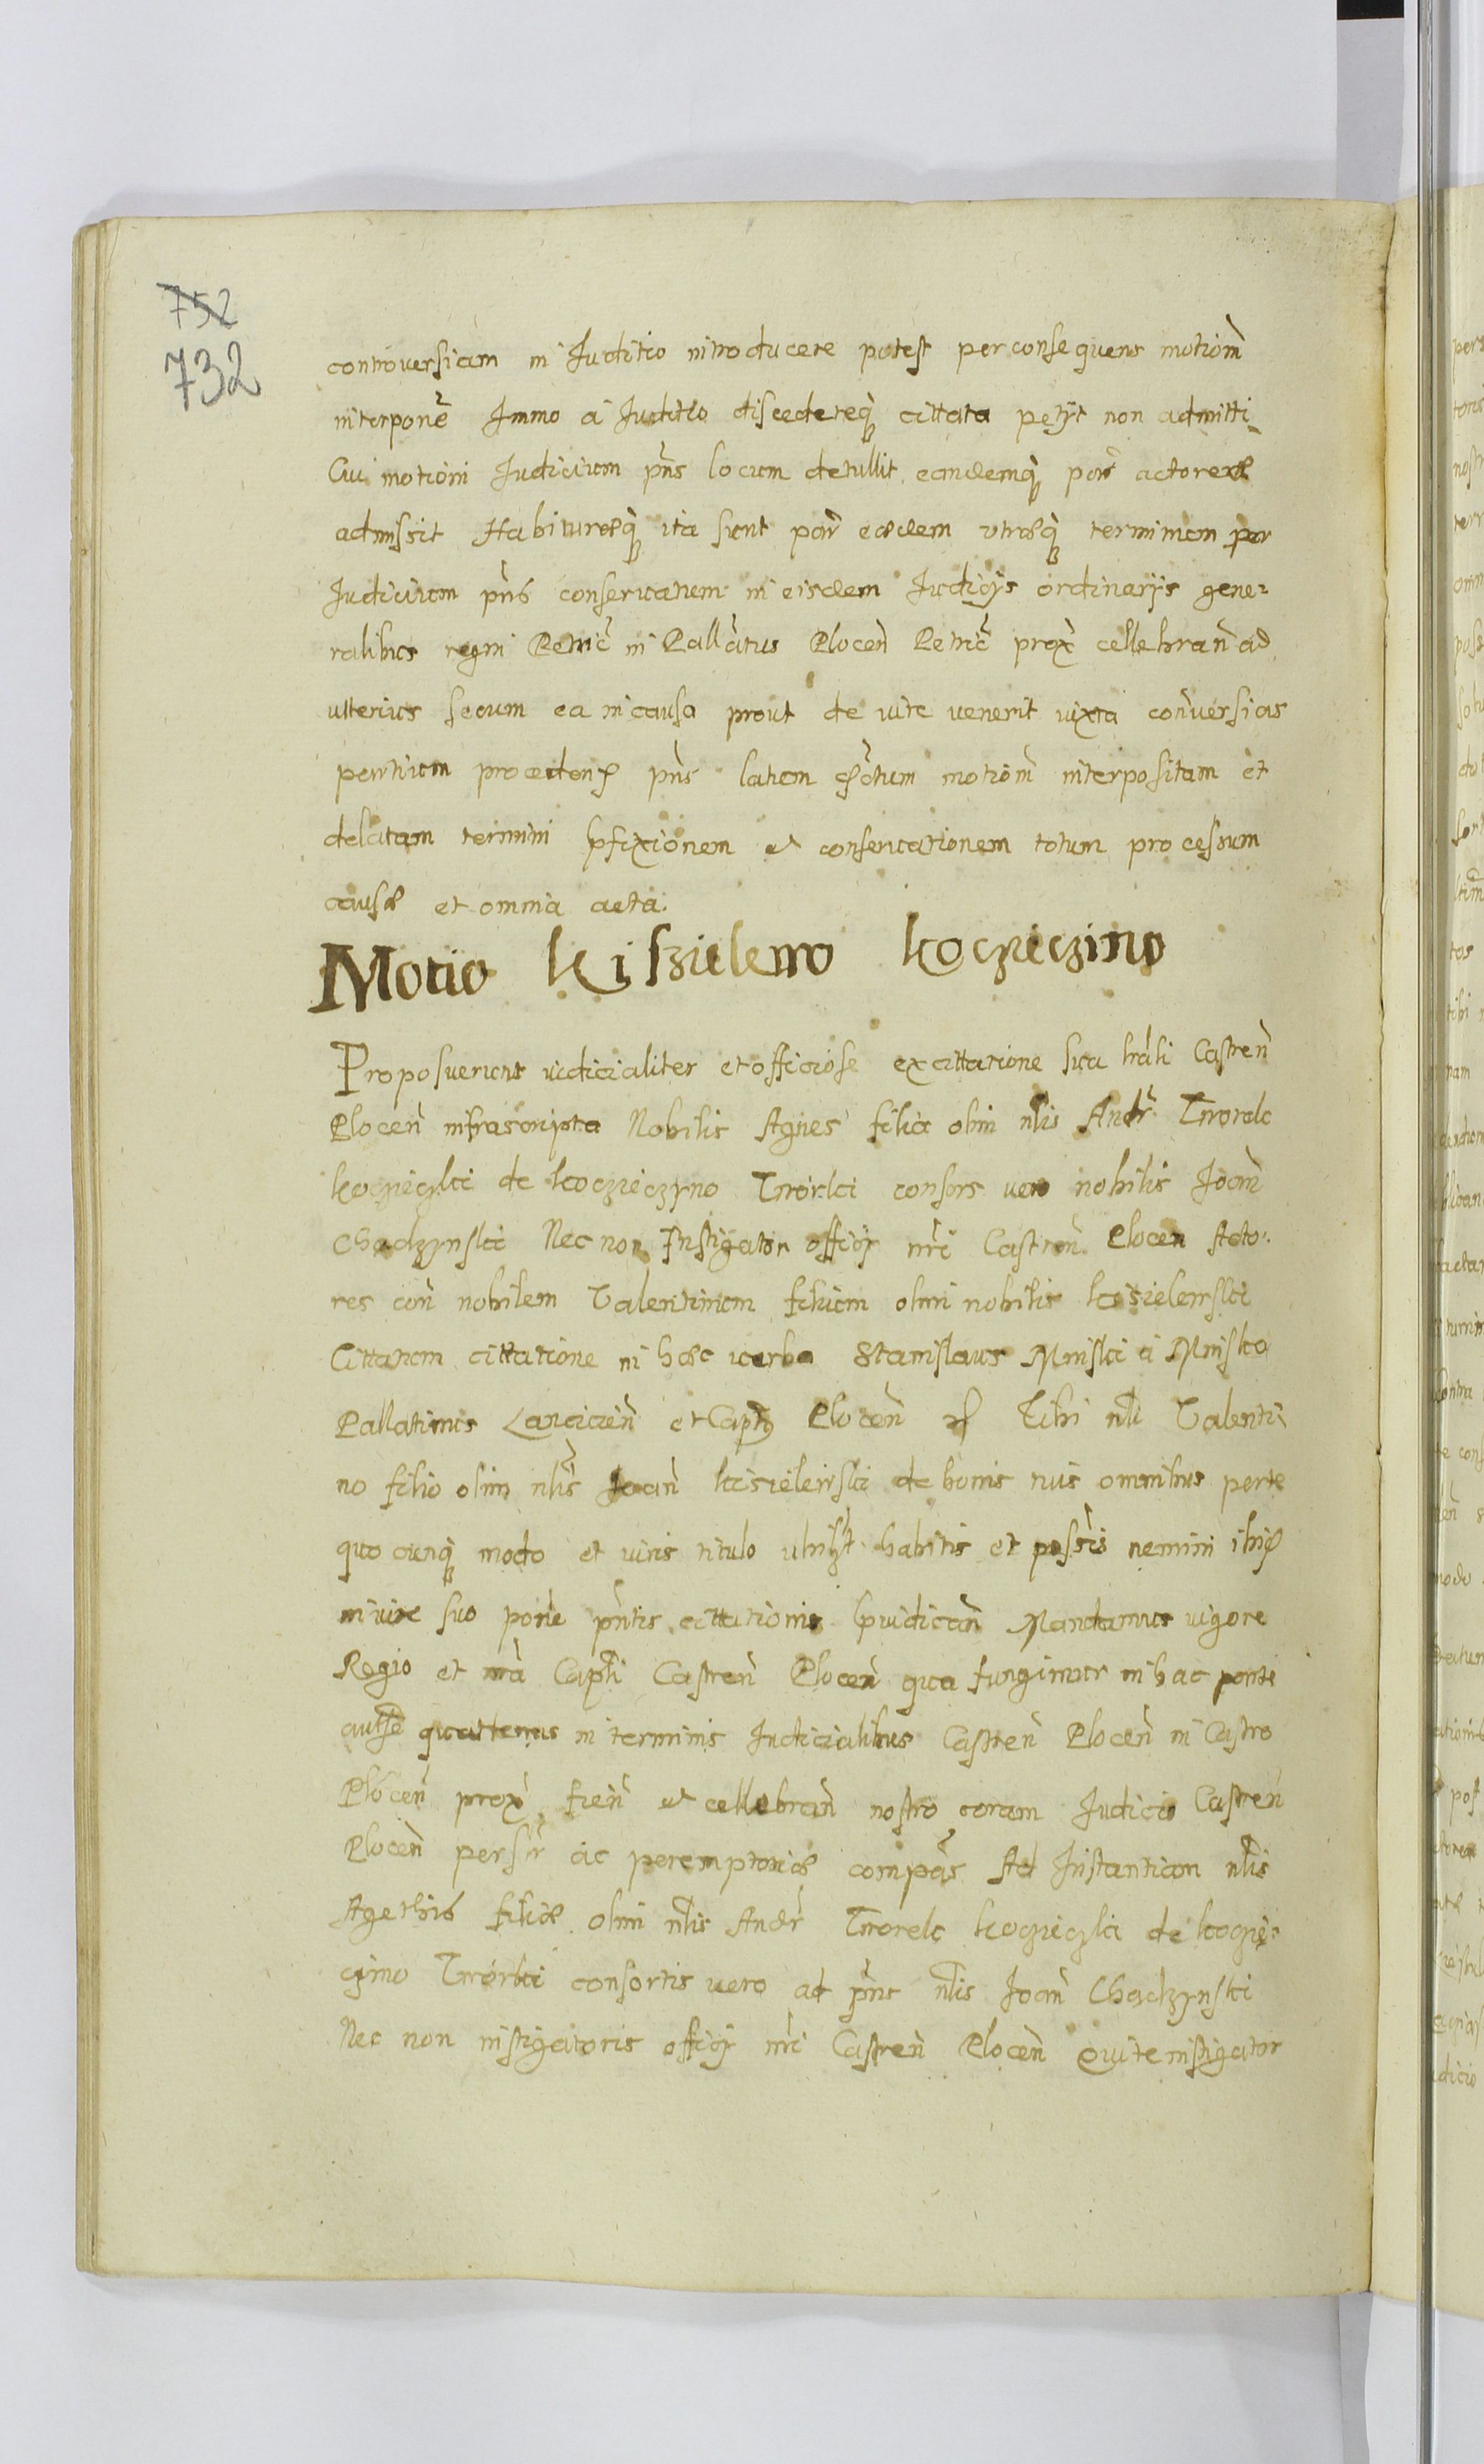 752
732
controuersiam in Juditio introducere potest per consequens motiom̃
interponẽ Immo a Juditio discedereq̃ cittata petyt non admitti
Cui motioni Judicium pñs locum detullit eandemq̃ actoreæ
admissit Habituræq̃ ita sunt eædem vtræq̃ terminum per
Judicium pñs conseruatum in eisdem Judicijs ordinarijs gene⸗
ralibus regni Petric̃ in Pallãtus Plocen̄ Petric̃ prox̃ cellebran̄ ad
ulterius secum ea in causa prout de iure uenerit iuxta con̄uersias
partium procedenᵭ pñs latum motiom̃ interpositam et
delatam termini pfixionem et conseruationem totum processum
causæ et omnia acta.
Motio Kiszielewo Koczieczino
Proposuerunt iudicialiter et officiose ex cittatione sua Castren̄
Plocen̄ infrascripta Nobilis Agnes filia olim nl̃is Andr̃ Tworek
Koczieczki de Koczieczyno Tworki consors uero nobilis Joan̄
Chadzynski Nec non Instigator officij nr̃i Castren̄ Plocen Acto⸗
res con̄ nobilem Valentinum filium olim nobilis Kisielewski
Cittatum cittatione in hæc uerba Stanislaus Minski a Minsko
Pallatinus Lancicien̄ et Capt̃ Plocen̄ Tibi nl̃i Valenti⸗
no filio olim nl̃is Joan̄ Kisielewski de bonis tuis omnibus per te
quocunq̃ modo et iuris titulo habitis et possis̃
in iure suo pñtis cittationis Mandamus uigore
Regio et nr̃a Capt̃li Castren̄ Plocen̄ qua fungimur in hac parte
quattenus in terminis Judicialibus Castren̄ Plocen̄ in Castro
Plocen̄ prox̃ fien̄ et cellebran̄ nostro coram Judicio Castren̄
Plocen̄ ac peremptoriæ compãs Ad Instantiam nl̃is
filiæ olim nl̃is Andr̃ Tworek Koczieczki de Koczie⸗
czino Tworki consortis uero ad pñs nl̃is Joan̄ Chadzynski
Nec non instigatoris officij nr̃i Castren̄ Plocen̄ Qui te instigator